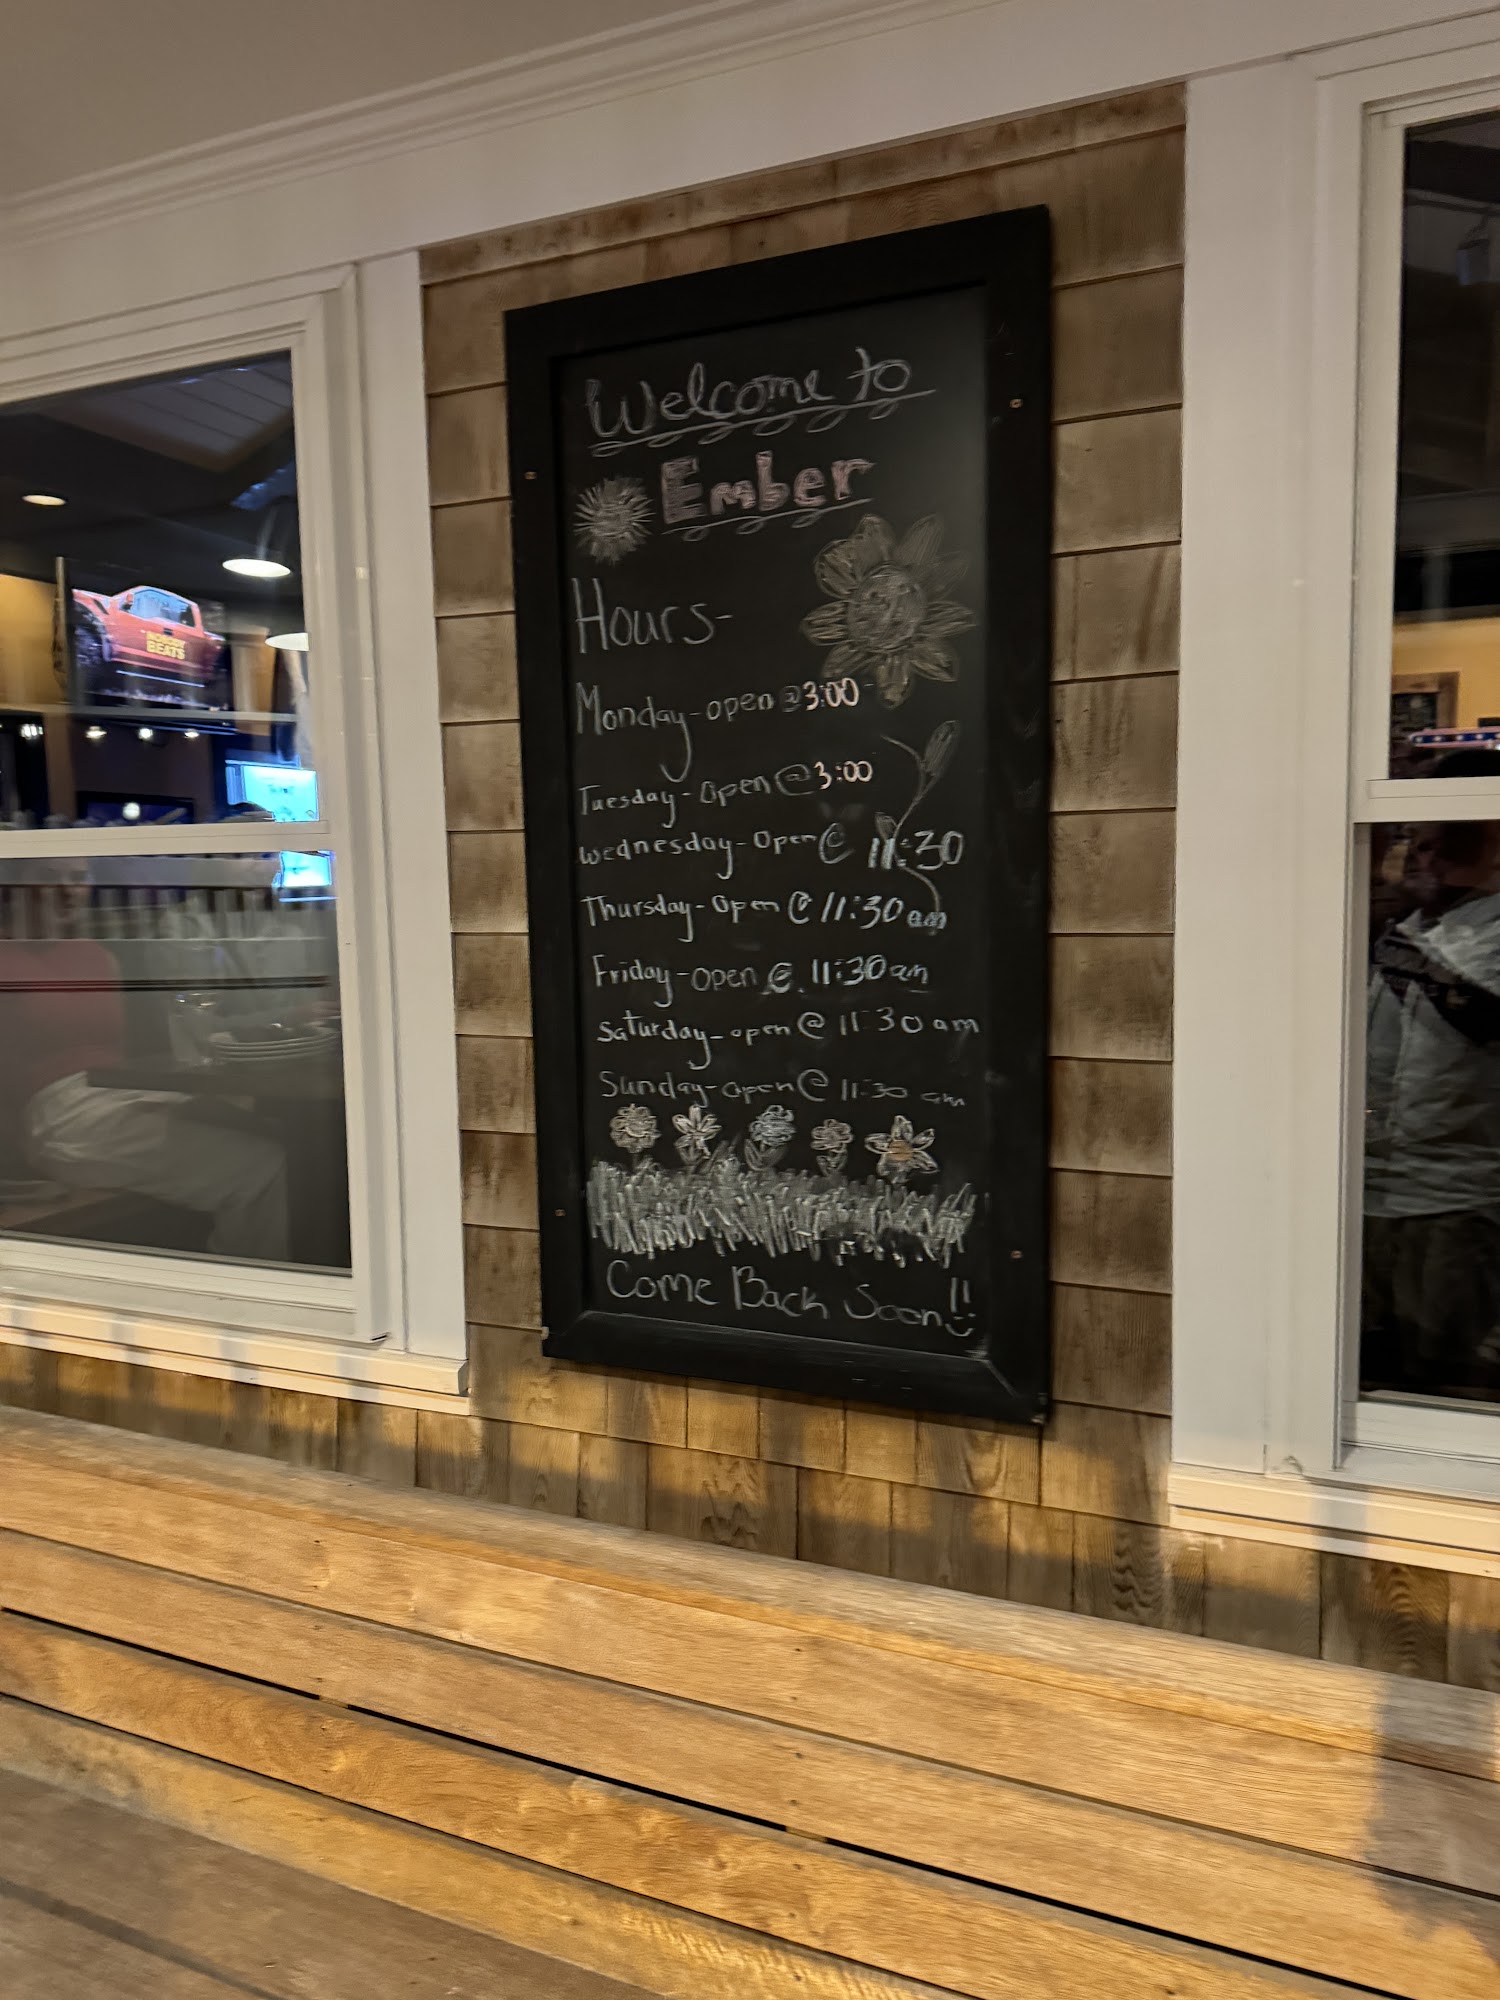 Welcome to
Ember
Hours-
Monday-open @3:00
Tuesday-Open @3:00
Wednesday-Open@ 11:30
Thursday-Open @ 11:30am
Friday-open @ 11:30am
Saturday-open@ 11:30 am
Sunday-open@ 11:30 am
Come Back Soon!!
NOBODY
BEATS